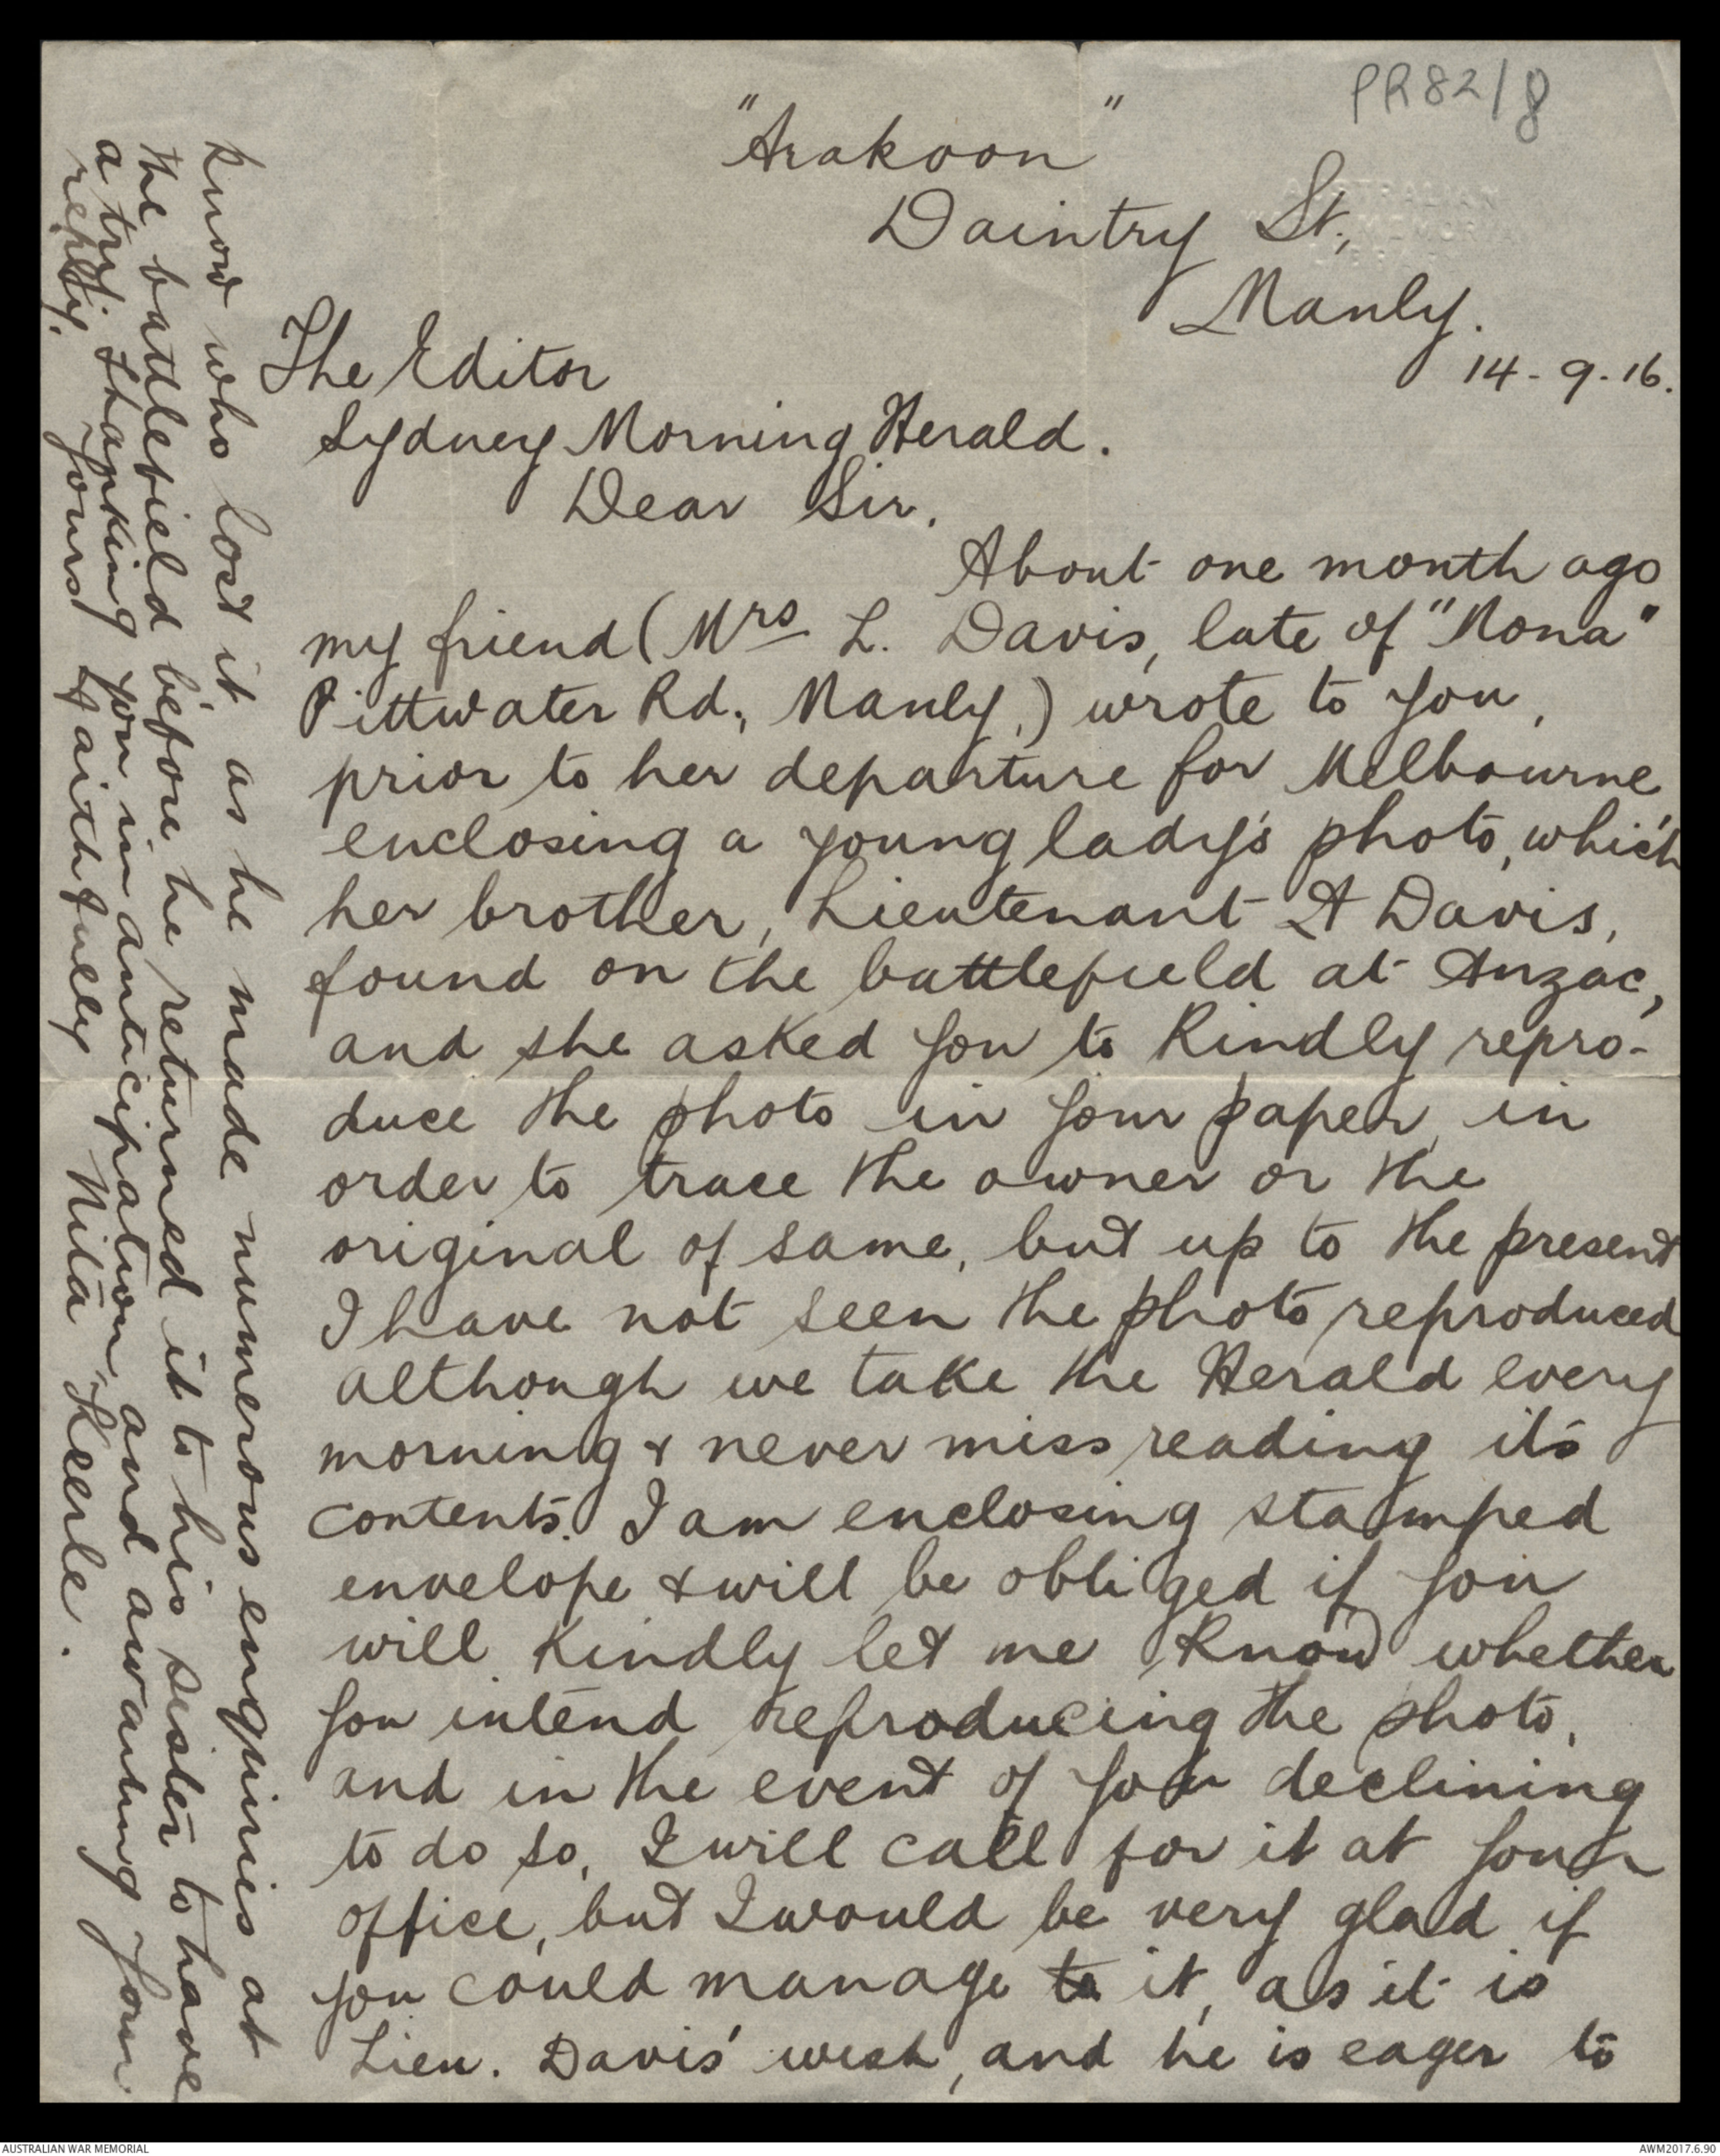 PR82/8
"Arakoon"
Daintry St.,
Manly.
14-9-16.
The Editor
Sydney Morning Herald.
Dear Sir,
About one month ago
my friend (Mrs L. Davis, late of "Mona"
Pittwater Rd., Manly,) wrote to you,
prior to her departure for Melbourne
enclosing a young lady's photo, which
her brother, Lieutenant A Davis,
found on the battlefield at Anzac,
and she asked you to kindly repro-
duce the photo in your paper, in
order to trace the owner or the
original of same, but up to the present
I have not seen the photo reproduced
although we take the Herald every
morning & never miss reading its
contents. I am enclosing stamped
envelope & will be obliged if you
will kindly let me know whether
you intend reproducing the photo,
and in the event of your declining
to do so, I will call for it at your
office, but I would be very glad if
you could manage to it, as it is
Lieu. Davis' wish, and he is eager to
know who lost it, as he made numerous enquiries at
the battlefield before he returned it to his sister to have
a try. Thanking you in anticipation, and awaiting your
reply.
Yours faithfully
Nita Keerle.
AUSTRALIAN WAR MEMORIAL
AWM2017.6.90